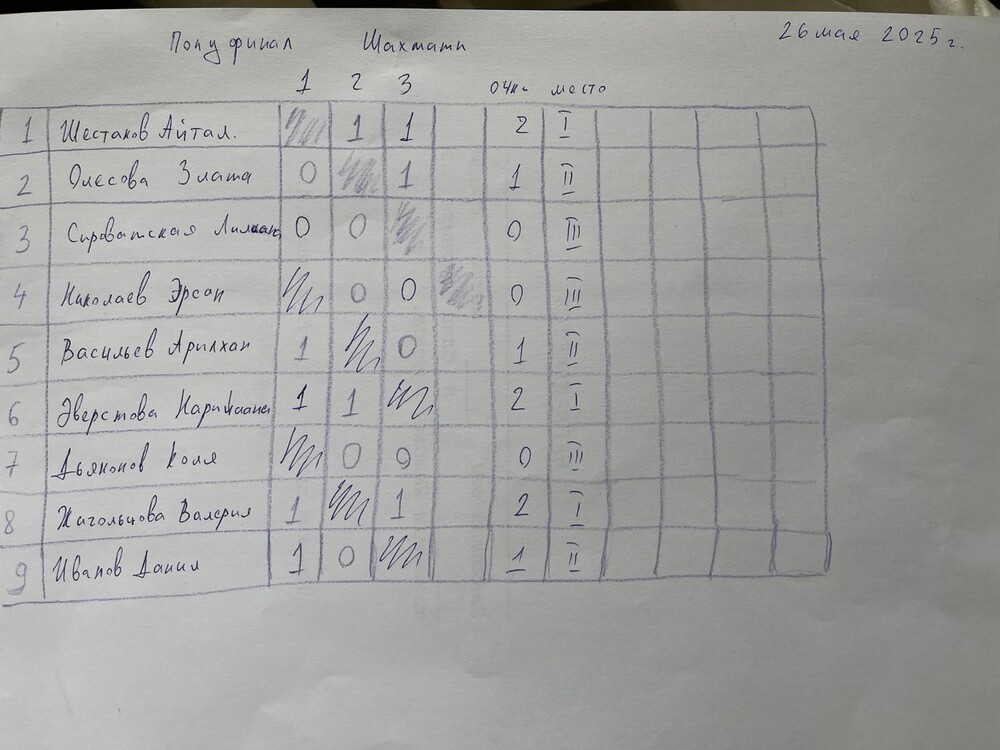 Полуфинал Шахматы 26 мая 2025 г.
1 2 3 очки место
1 Шестаков Айтал. 1 1 2 I
2 Олесова Злата 0 1 1 II
3 Сыроватская Лилиана 0 0 0 III
4 Николаев Эрсан 0 0 0 III
5 Васильев Арылхан 1 0 1 II
6 Эверстова Нарыйаана 1 1 2 I
7 Дьяконов Коля 0 0 0 III
8 Жигольцова Валерия 1 1 2 I
9 Иванов Данил 1 0 1 II